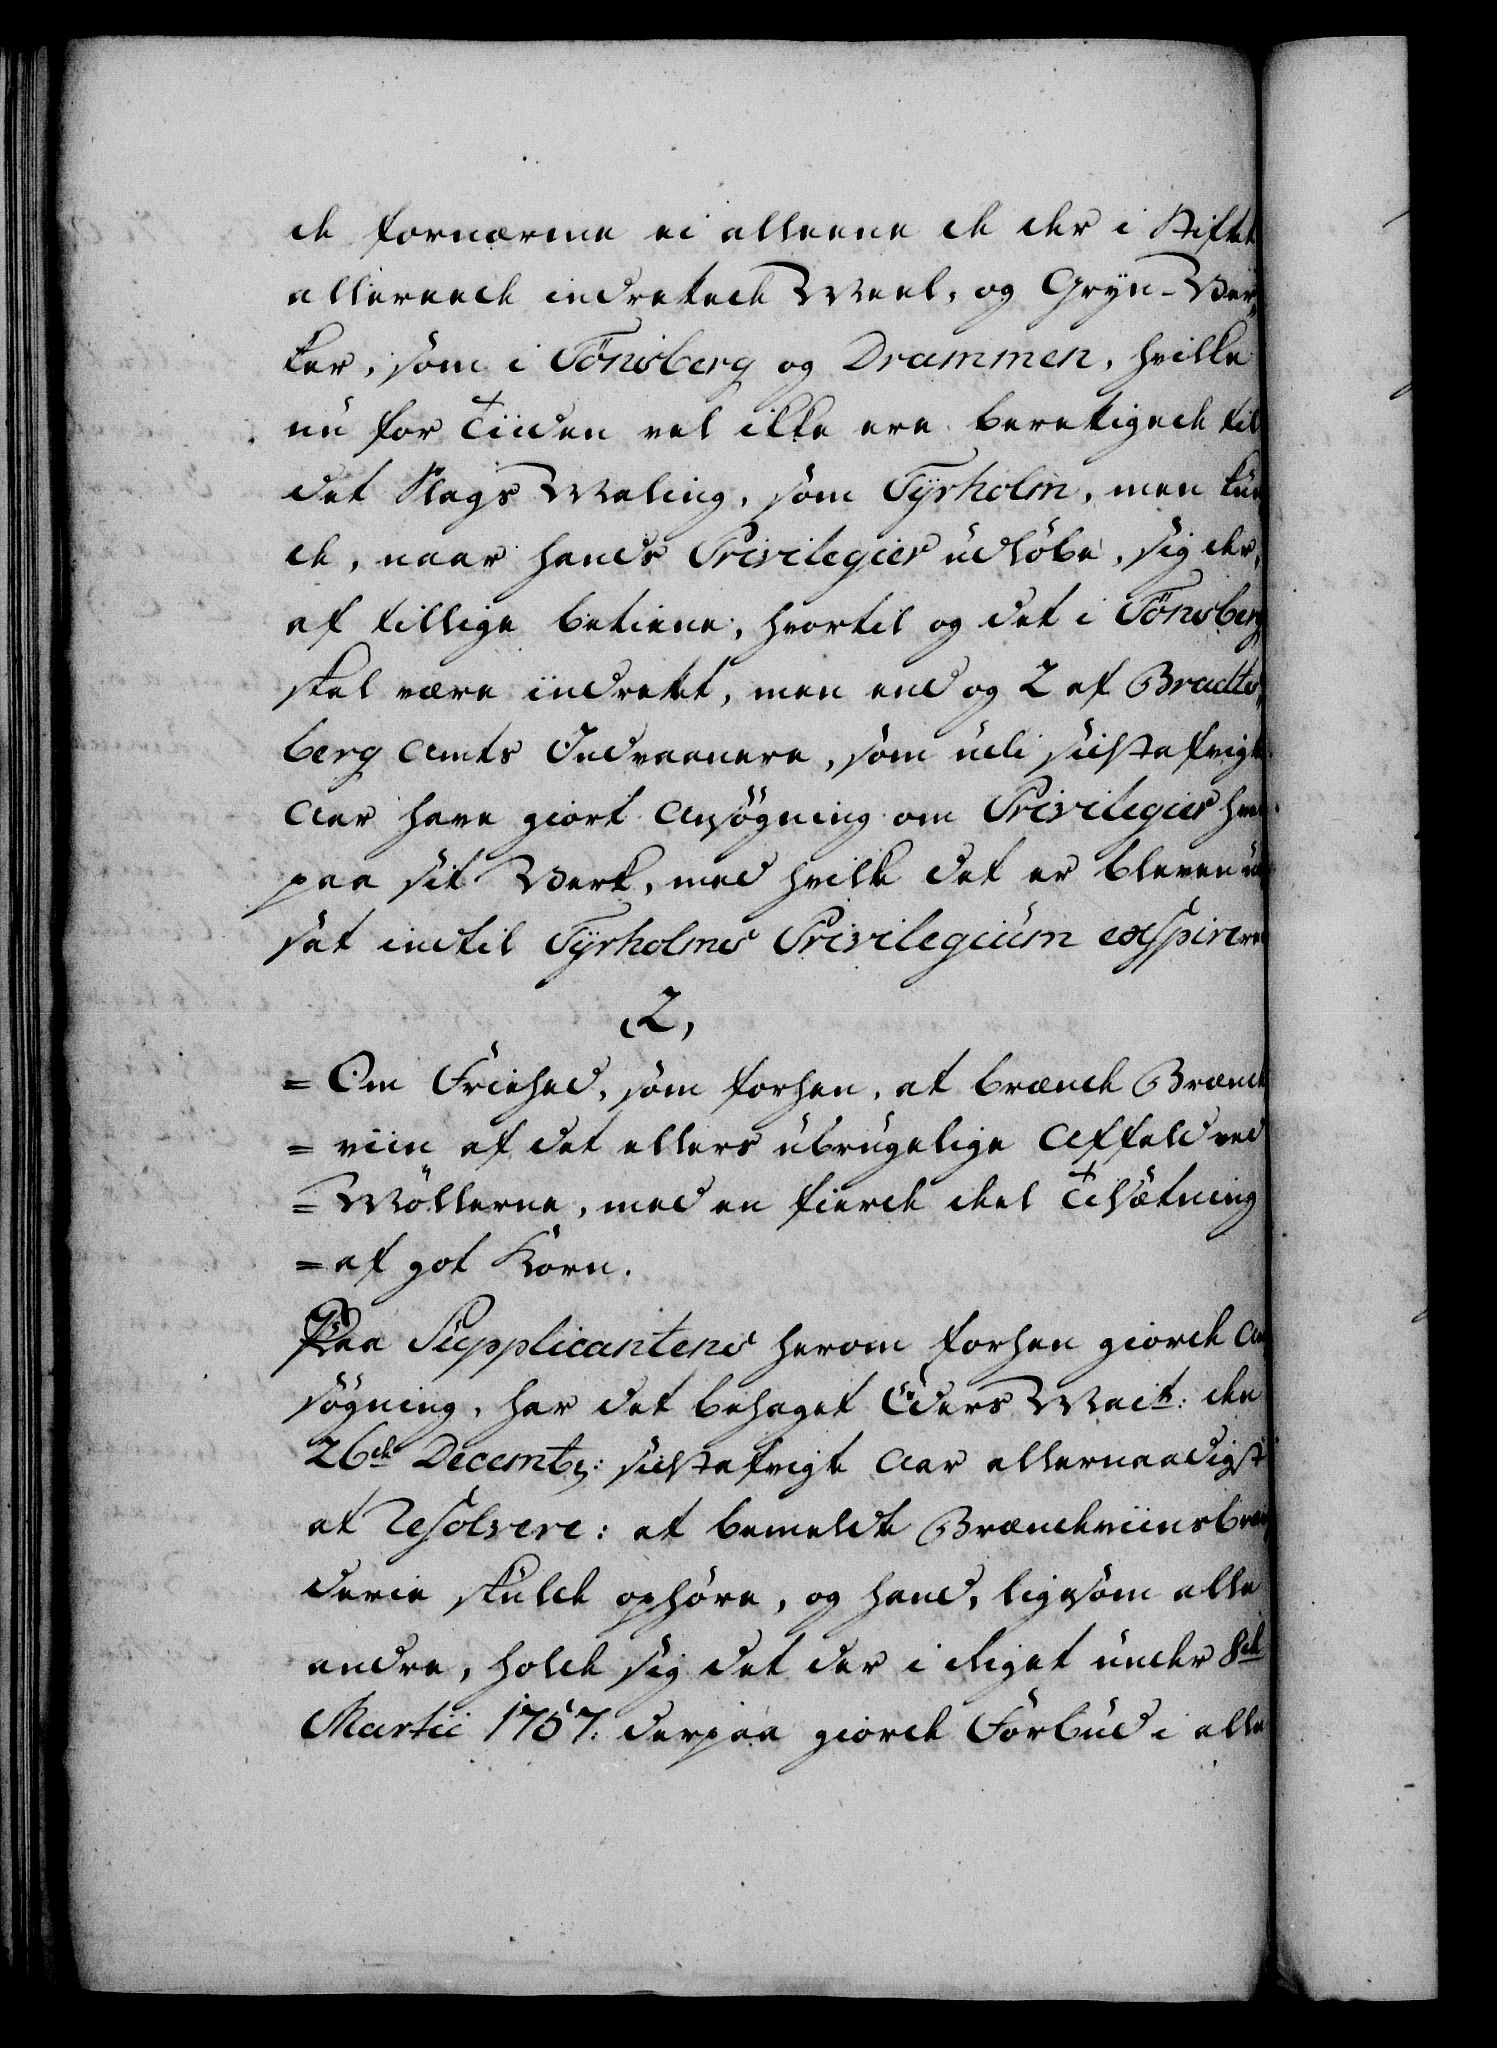 de fornærme ei alleene de der i Stiftet
allereede indrettede Meel- og Gryn-Ver-
ker, som i Tönsberg og Drammen, hvilke
nu for Tiiden vel ikke ere berettigede til
det Slags Maling, som Tyrholm, men kun
de, naar hands Privilegier udløbe, sig der-
af tillige betiene, hvortil og det i Tönsberg
skal være iindrettet, men end og 2 af Bradts-
berg Amts Indvaanere, som udi sidstafvigte
Aar have giort Ansögning om Privilegier hver
paa sit Verk, med hvilke det er bleven ud
sat indtil Tyrholms Privilegium exspirere
2,
= Om Friehed, som forhen, at brænde Brænde
= viin af det ellers ubrugelige Affald ved
= Møllerne, med en fierde deel Tilsætning
= af got Korn.
Paa Supplicantens herom forhen giorde An
søgning, har det behaget Eders Mait: den
26de Decembr: sidstafvigte Aar allernaadigst
at Resolvere: at bemeldte Brændeviinsbræn
derie skulde ophøre, og hand, ligesom alle
andre, holde sig det der i Riget under 8de
Martii 1757. derpaa giorde Forbud i alle